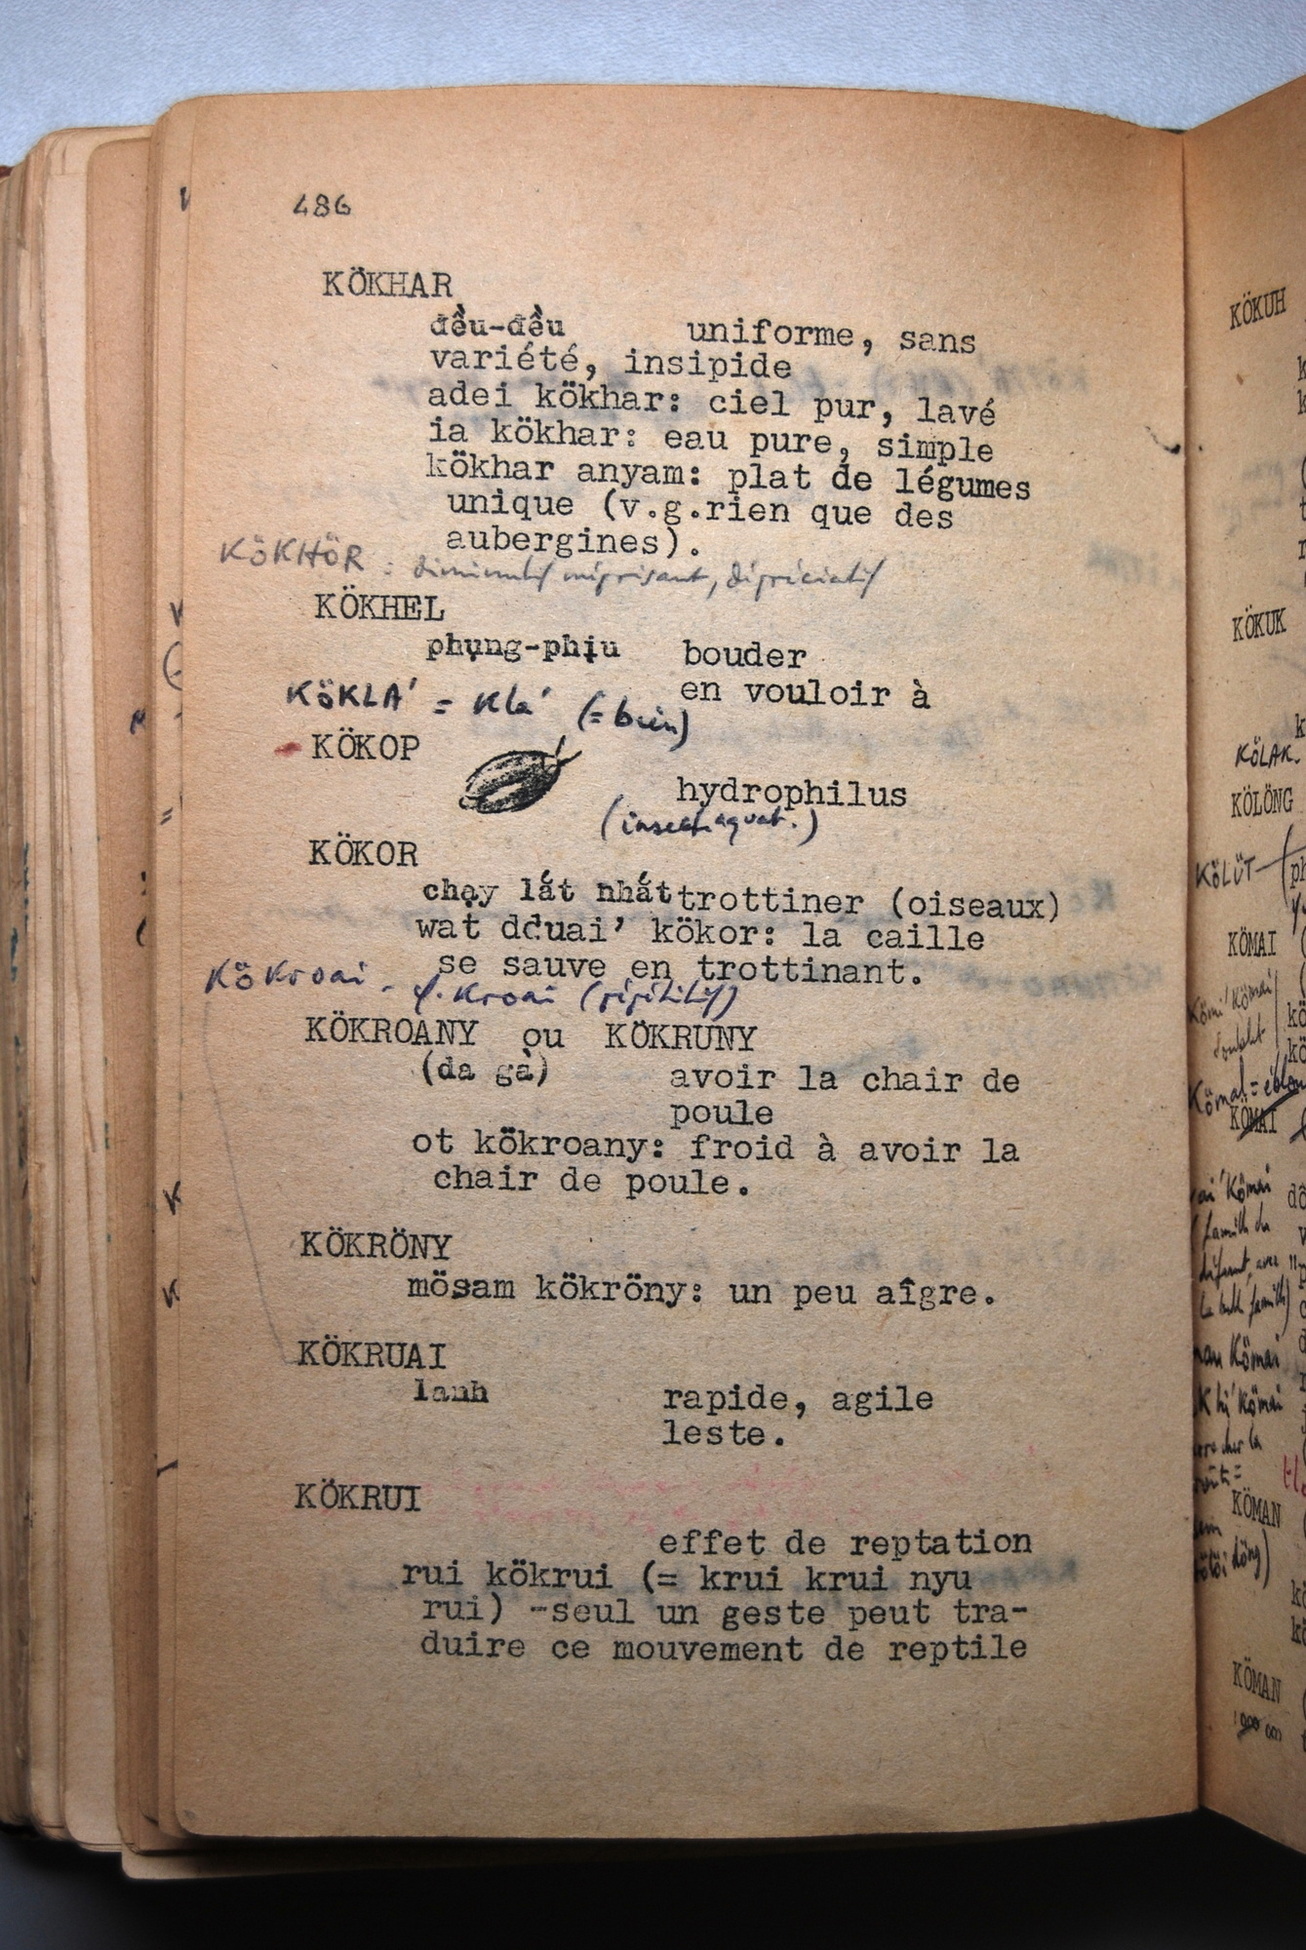 486
KÖKHAR
đều-đều uniforme, sans
variété, insipide
adei kökhar: ciel pur, lavé
ia kökhar: eau pure, simple
kökhar anyam: plat de légumes
unique (v.g.rien que des
aubergines).
KÖKHÖR : diminutif méprisant, dépréciatif
KÖKHEL
phụng-phịu bouder
en vouloir à
KÖKLA' = kla' (= bien)
KÖKOP
hydrophilus
(insect. aquat.)
KÖKOR
chạy lắt nhắt trottiner (oiseaux)
wat dduai' kökor: la caille
se sauve en trottinant.
Kökroai kroai
KÖKROANY ou KÖKRUNY
(da gà) avoir la chair de
poule
ot kökroany: froid à avoir la
chair de poule.
KÖKRÖNY
mösam kökröny: un peu aîgre.
KÖKRUAI
lanh rapide, agile
leste.
KÖKRUI
effet de reptation
rui kökrui (= krui krui nyu
rui) -seul un geste peut tra-
duire ce mouvement de reptile
KÖKUH
KÖKUK
KÖLAK
KÖLÖNG
KÖLÜT
KÖMAI
KÖMAI
KÖMAN
KÖMAN